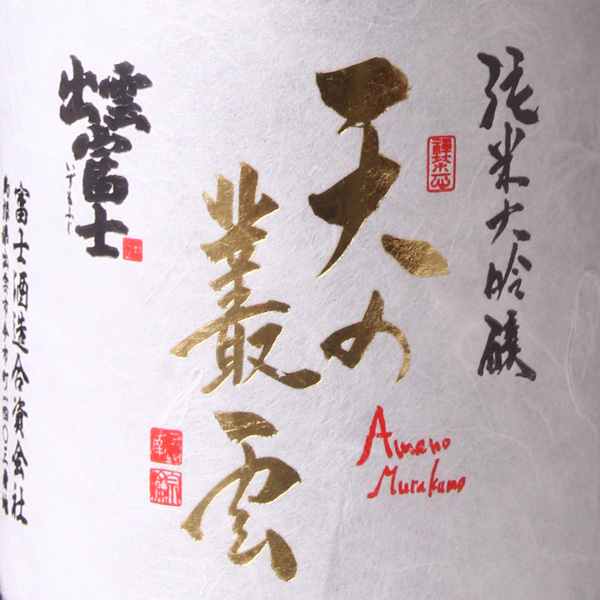 純米大吟醸
天の
叢雲
Amano
Murakumo
出雲富士
いずもふじ
富士酒造合資会社
島根県出雲市今市町一四〇三番地